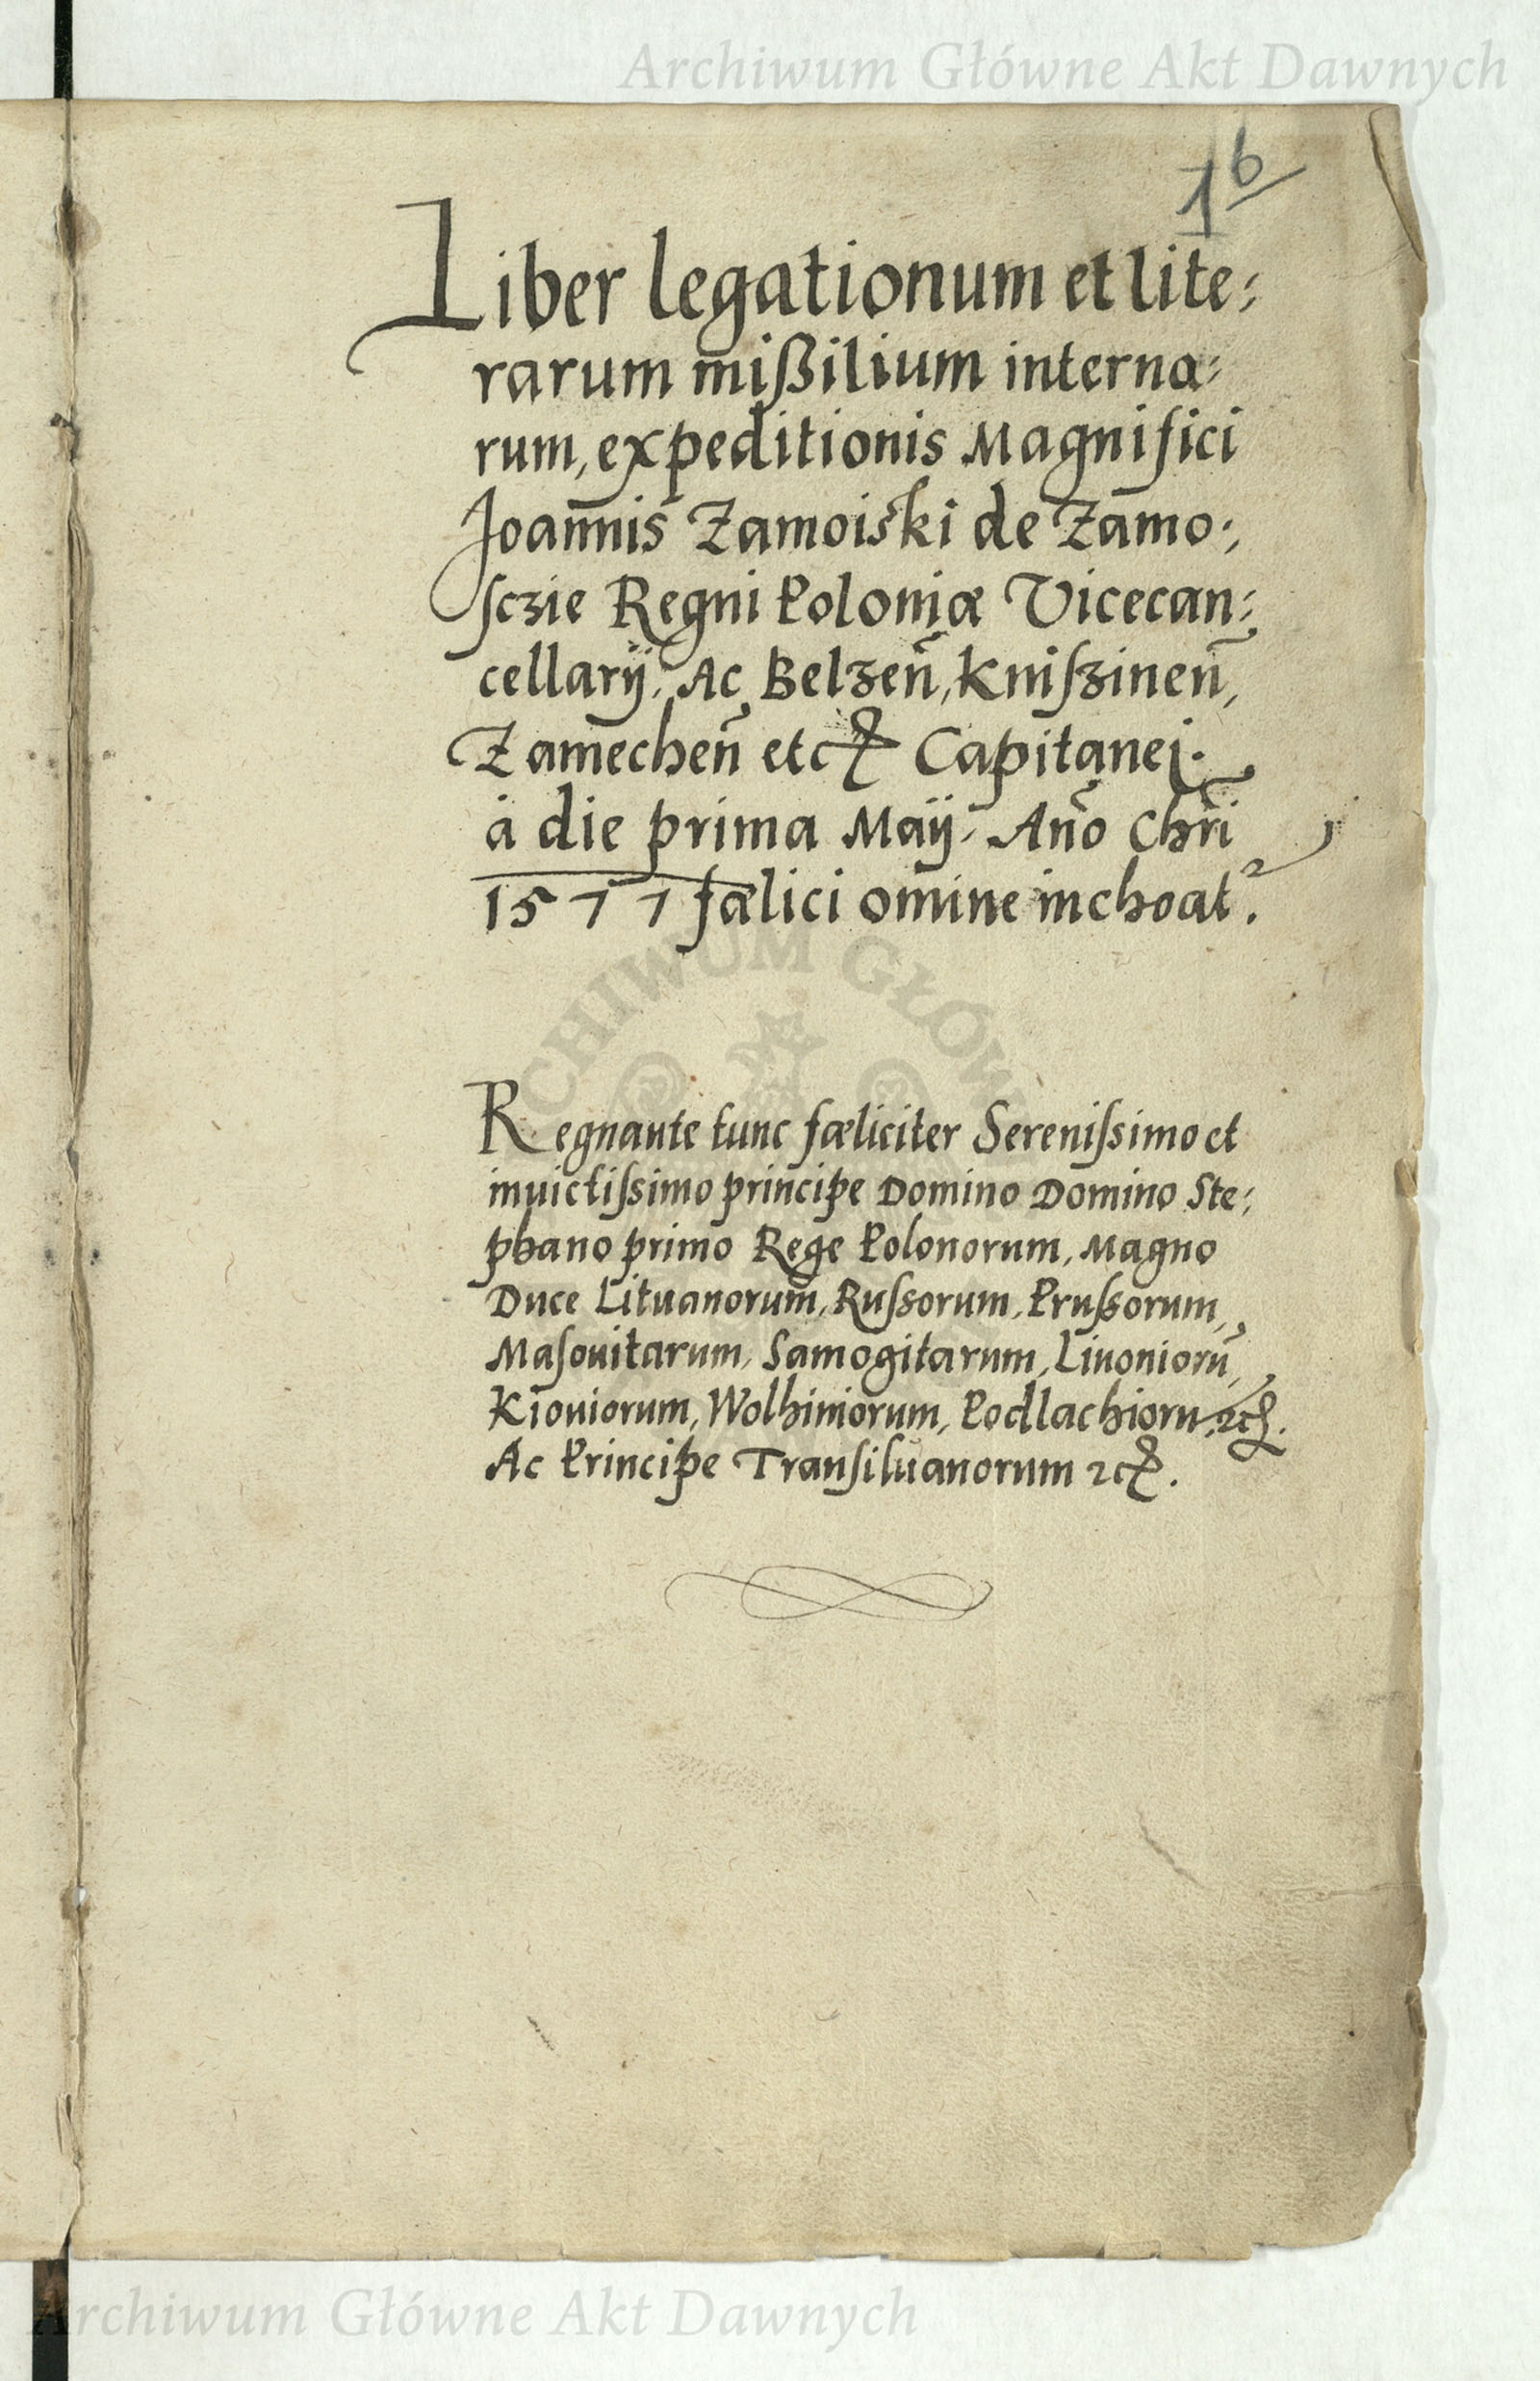 Archiwum Główne Akt Dawnych
1b
Liber legationum et lite:
rarum mißilium interna:
rum, expeditionis Magnifici
Joannis Zamoiski de Zamo:
sczie Regni Poloniæ Vicecan:
cellarij, Ac Belzen̄, Kniszinen̄,
Zamechen̄ etc Capitanei.
à die prima Maij, An̄o Chr̄i
1577 fælici omine inchoat⁹.
ARCHIWUM GŁÓWNE
Regnante tunc fæliciter Serenissimo et
inuictissimo principe Domino Domino Ste:
phano primo Rege Polonorum, Magno
Duce Lituanorum, Russorum, Prussorum,
Masouitarum, Samogitarum, Liuoniorū,
Kiouiorum, Wolhiniorum, Podlachioru, etc.
Ac Principe Transiluanorum etc.
Archiwum Główne Akt Dawnych